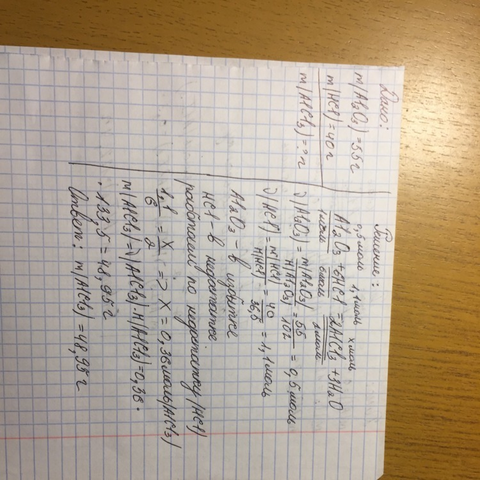 Дано:
m(Al₂O₃)=55г
m(HCl)=40г
m(AlCl₃)=?г
Решение:
0,5моль 1,1моль x моль
Al₂O₃ + 6HCl = 2AlCl₃ + 3H₂O
1моль 6моль 2моль
ν(Al₂O₃) = m(Al₂O₃)/M(Al₂O₃) = 55/102 = 0,5моль
ν(HCl) = m(HCl)/M(HCl) = 40/36,5 = 1,1моль
Al₂O₃ - в избытке
HCl - в недостатке
работаем по недостатку (HCl)
1,1/6 = x/2 => x = 0,36моль(AlCl₃)
m(AlCl₃)=ν(AlCl₃)·M(AlCl₃)=0,36·
·133,5=48,95г
Ответ: m(AlCl₃)=48,95г